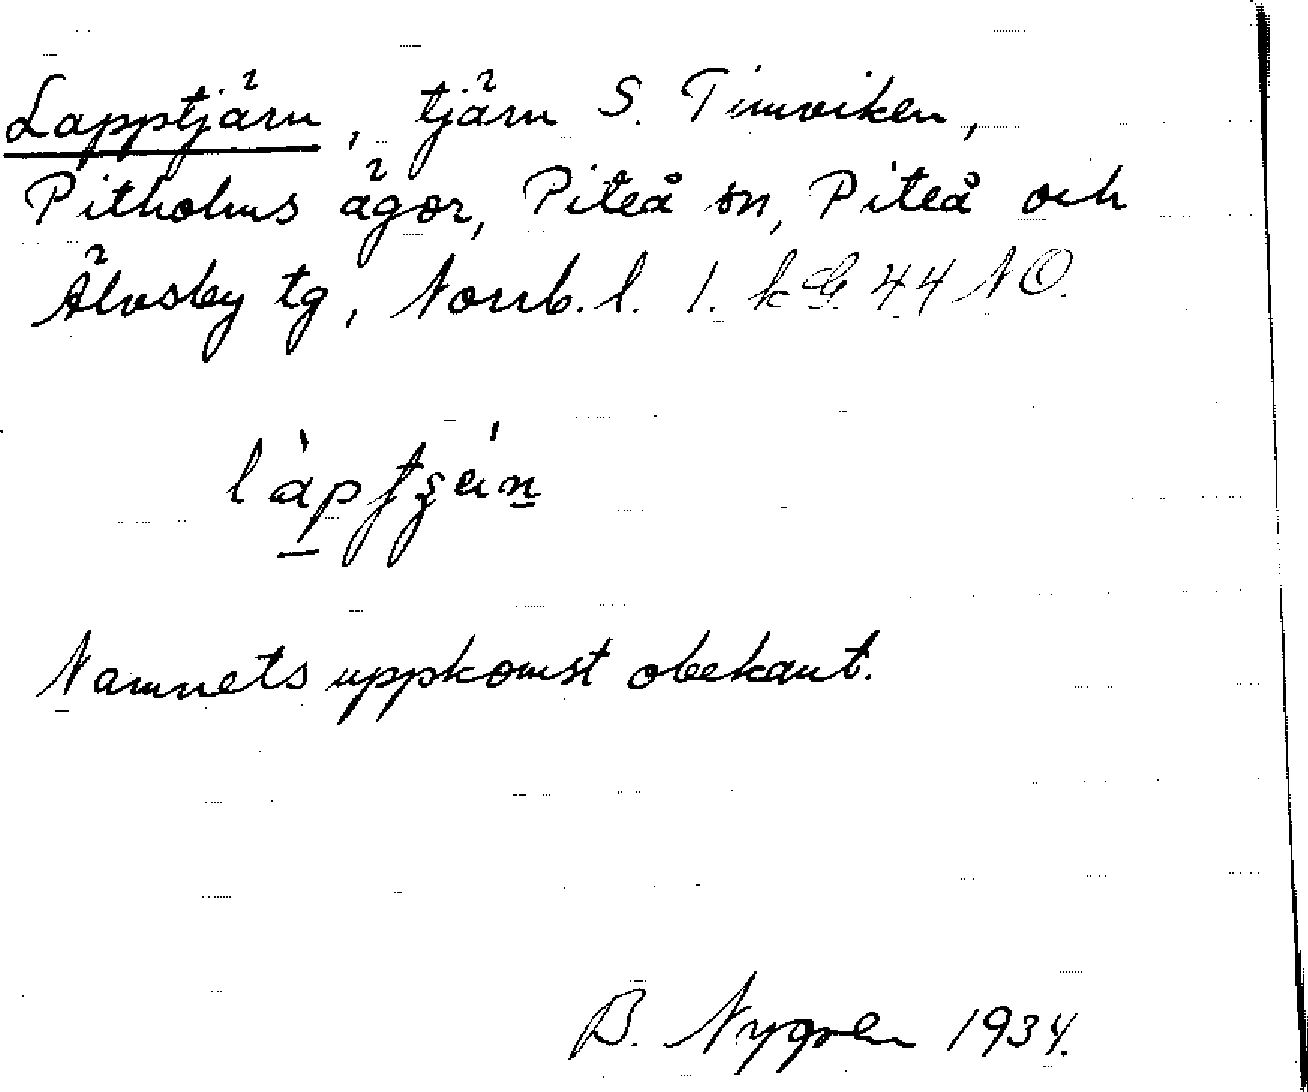 Lapptjärn, tjärn S. Timviken,
Pitholms ägor, Piteå sn, Piteå och
Älvsby tg, Norrb. l. 1. k G. 44 NO.
Namnets uppkomst obekant.
B. Nygren 1934.